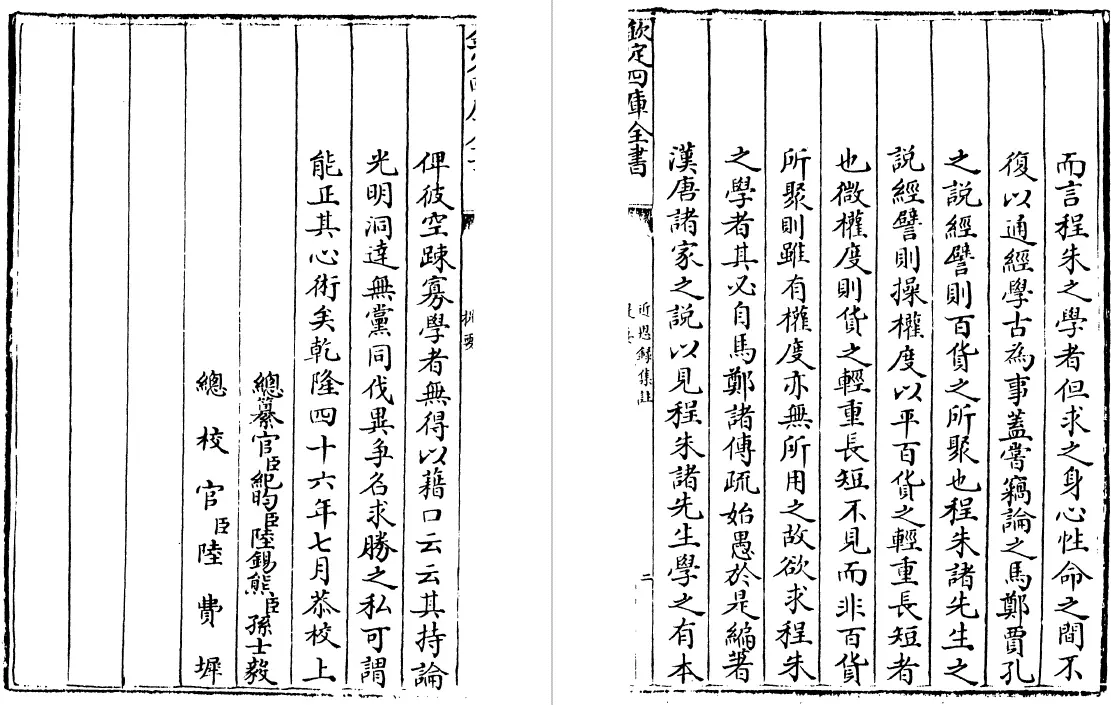 而言程朱之學者但求之身心性命之間不
復以通經學古為事蓋嘗竊論之馬鄭賈孔
之說經譬則百貨之所聚也程朱諸先生之
說經譬則操權度以平百貨之輕重長短者
也微權度則貨之輕重長短不見而非百貨
所聚則雖有權度亦無所用之故欲求程朱
之學者其必自馬鄭諸傳疏始愚於是編著
漢唐諸家之說以見程朱諸先生學之有本
欽定四庫全書
近思錄集註
二
俾彼空疎寡學者無得以藉口云云其持論
光明洞達無黨同伐異爭名求勝之私可謂
能正其心術矣乾隆四十六年七月恭校上
總纂官臣紀昀臣陸錫熊臣孫士毅
總校官臣陸費墀